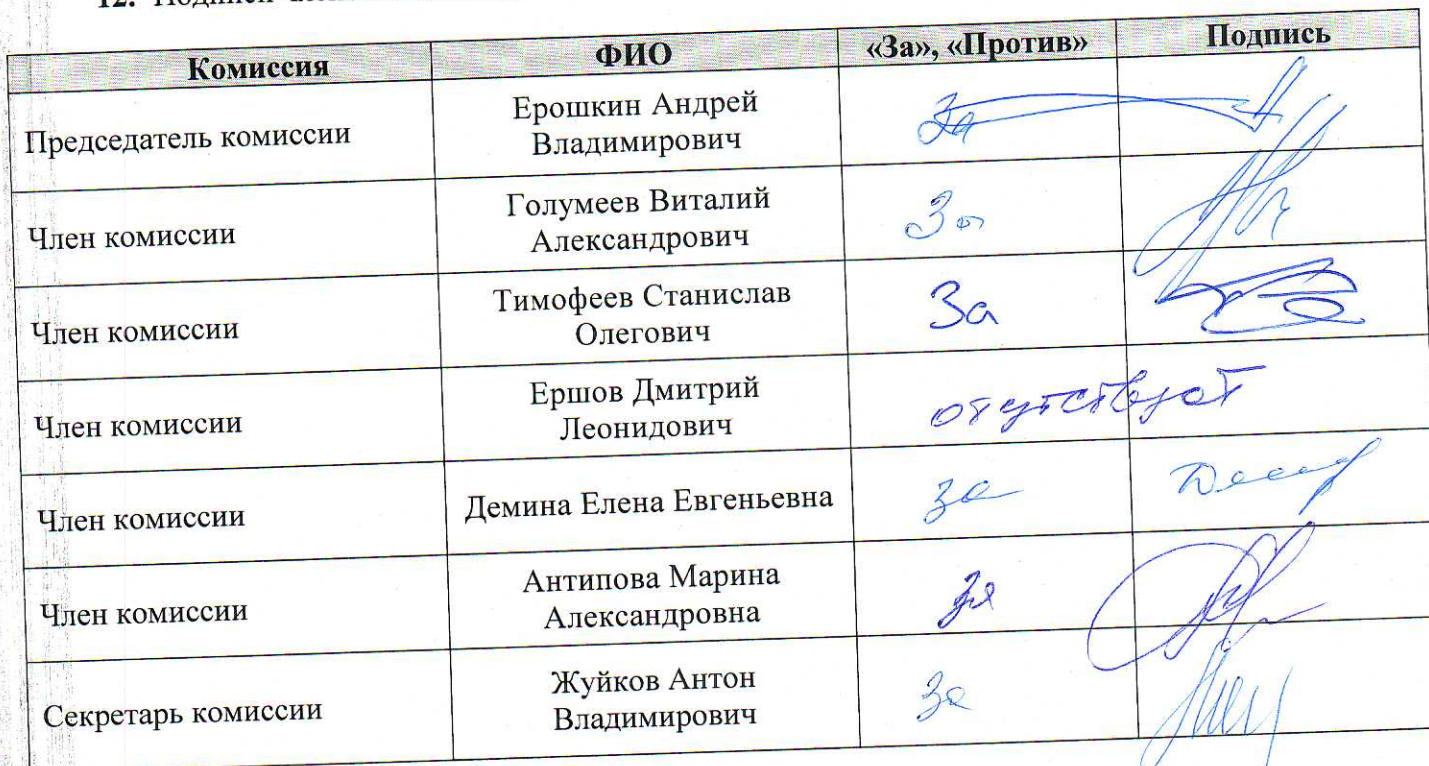 12. Подписи
Комиссия ФИО «За», «Против» Подпись
Председатель комиссии Ерошкин Андрей Владимирович За
Член комиссии Голумеев Виталий Александрович За
Член комиссии Тимофеев Станислав Олегович За
Член комиссии Ершов Дмитрий Леонидович отсутствует
Член комиссии Демина Елена Евгеньевна за
Член комиссии Антипова Марина Александровна за
Секретарь комиссии Жуйков Антон Владимирович За